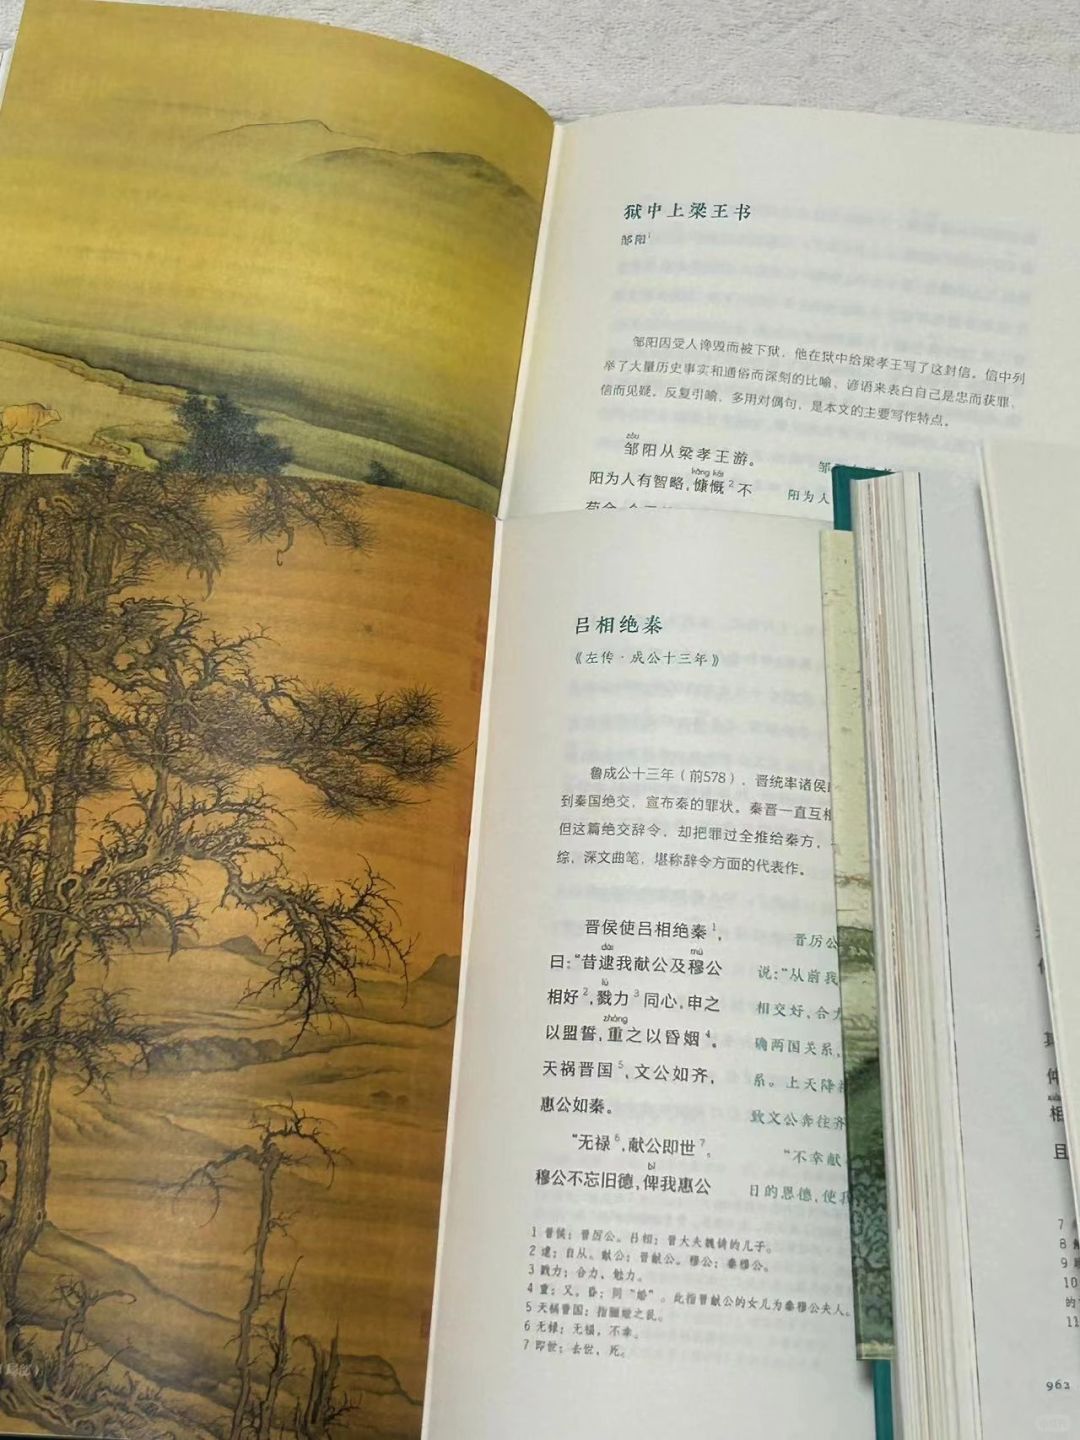 狱中上梁王书
邹阳¹
邹阳因受人谗毁而被下狱，他在狱中给梁孝王写了这封信。信中列
举了大量历史事实和通俗而深刻的比喻、谚语来表白自己是忠而获罪，
信而见疑。反复引喻，多用对偶句，是本文的主要写作特点。
zōu
邹阳从梁孝王游。
kāng kǎi
阳为人有智略，慷慨²不
阳为人
吕相绝秦
《左传·成公十三年》
鲁成公十三年（前578），晋统率诸侯
到秦国绝交，宣布秦的罪状。秦晋一直互相
但这篇绝交辞令，却把罪过全推给秦方，
综，深文曲笔，堪称辞令方面的代表作。
晋侯使吕相绝秦¹，
dài mù
曰：“昔逮我献公及穆公
lù
相好²，戮力³同心，申之
zhòng
以盟誓，重之以昏姻⁴。
天祸晋国⁵，文公如齐，
惠公如秦。
“无禄⁶，献公即世⁷。
bǐ
穆公不忘旧德，俾我惠公
晋厉公
说：“从前我
相交好，合力
确两国关系，
系。上天降
致文公奔往齐
“不幸献
日的恩德，使我
1 晋侯：晋厉公。吕相：晋大夫魏锜的儿子。
2 逮：自从。献公：晋献公。穆公：秦穆公。
3 戮力：合力，勉力。
4 重：又。昏：同“婚”。此指晋献公的女儿为秦穆公夫人。
5 天祸晋国：指骊姬之乱。
6 无禄：无福，不幸。
7 即世：去世，死。
仲
相
且
7
8
9
10
的
11
962